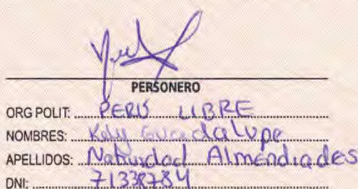 PERSONERO
ORG POLIT: PERÚ LIBRE
NOMBRES: Kely Guadalupe
APELLIDOS: Natividad Almendrades
DNI: 71338784